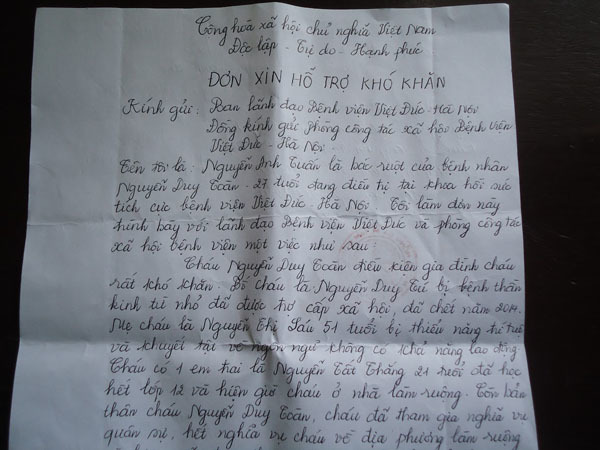 Cộng hòa xã hội chủ nghĩa Việt Nam
Độc lập - Tự do - Hạnh phúc
ĐƠN XIN HỖ TRỢ KHÓ KHĂN
Kính gửi: Ban lãnh đạo Bệnh viện Việt Đức - Hà Nội
Đồng kính gửi phòng công tác xã hội Bệnh viện
Việt Đức - Hà Nội.
Tên tôi là: Nguyễn Anh Tuấn là bác ruột của bệnh nhân
Nguyễn Duy Toàn - 27 tuổi đang điều trị tại khoa hồi sức
tích cực bệnh viện Việt Đức - Hà Nội. Tôi làm đơn này
trình bày với lãnh đạo Bệnh viện Việt Đức và phòng công tác
xã hội bệnh viện một việc như sau:
Cháu Nguyễn Duy Toàn điều kiện gia đình cháu
rất khó khăn. Bố cháu là Nguyễn Duy Tứ bị bệnh thần
kinh từ nhỏ đã được trợ cấp xã hội, đã chết năm 2014.
Mẹ cháu là Nguyễn Thị Sáu 51 tuổi bị thiểu năng trí tuệ
và khuyết tật về ngôn ngữ không có khả năng lao động.
Cháu có 1 em trai là Nguyễn Tất Thắng 21 tuổi đã học
hết lớp 12 và hiện giờ cháu ở nhà làm ruộng. Còn bản
thân cháu Nguyễn Duy Toàn, cháu đã tham gia nghĩa vụ
quân sự, hết nghĩa vụ cháu về địa phương làm ruộng